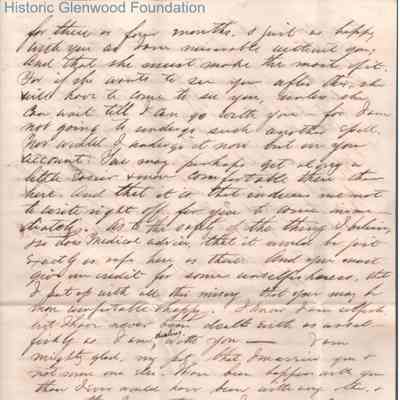 Historic Glenwood Foundation
for three or four months, & just as happy
with you as I am miserable without you,
and that she must make the most of it.
For if she wants to see you after this, she
will have to come to see you, unless she
can wait till I can go with you — for I am
not going to undergo such another spell.
Nor would I undergo it now but on your
account. You may perhaps get along a
little easier & more comfortable there than
here. And that it is that induces me not
to write right off, for you to come imme-
diately. As to the safety of the thing I believe,
so does medical advice, that it would be just
exactly as safe here as there. And you must
give me credit for some unselfishness, that
I put up with all this misery that you may be
more comfortable & happy. I know I am selfish
but I have never been dealt with as
I am, with you — I am
mighty glad, my pet, that I married you &
not some one else. Have been happier with you
than I ever would have been with any other, &